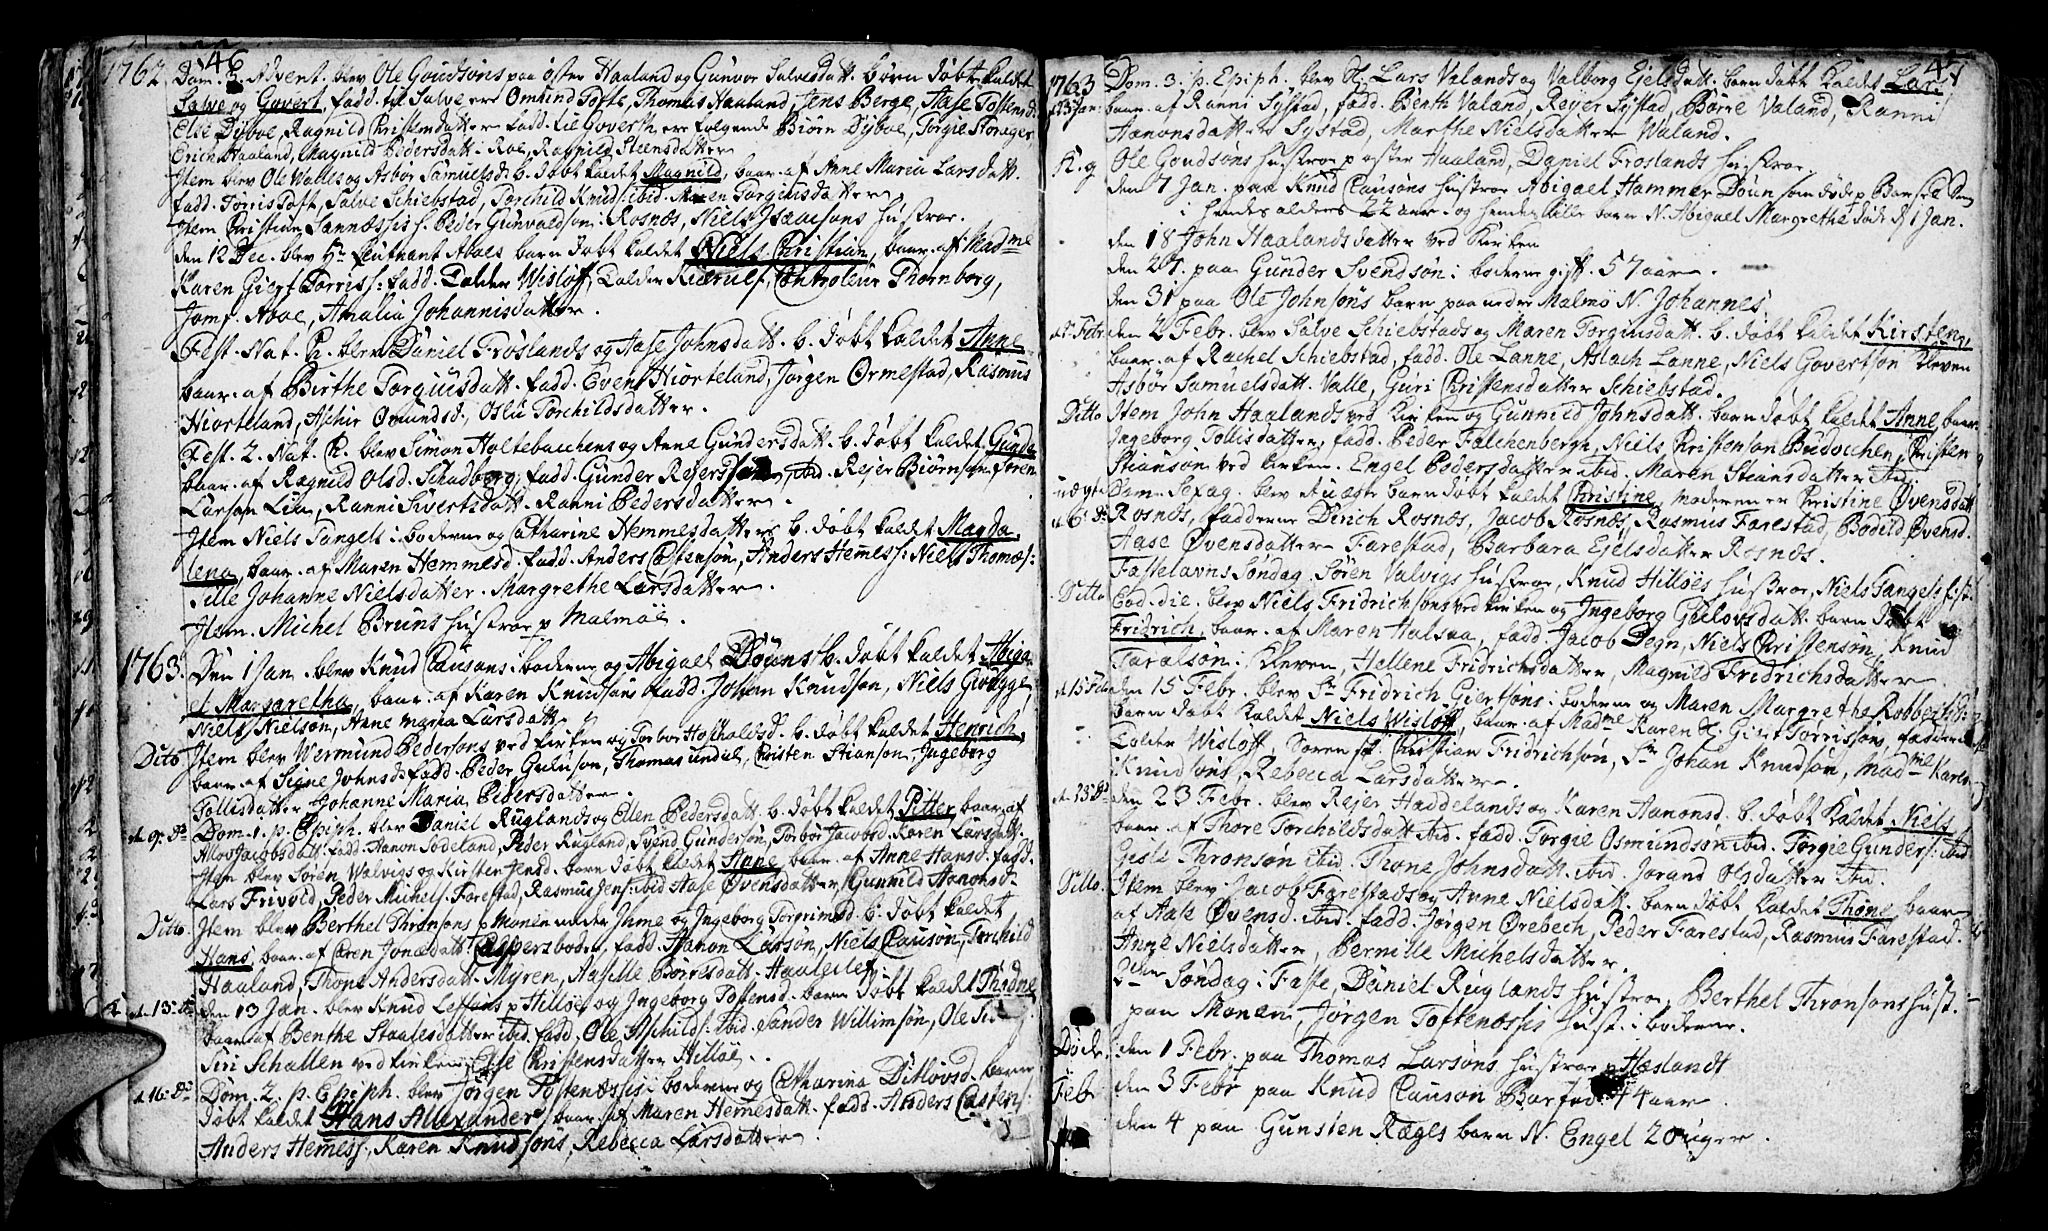 46
1762 Dom. 3. Advent. blev Ole Goudsøns paa øster Haaland og Gunvor Salvesdatt. børn døbt kaldet
Salve og Govert, fadd. til Salve ere Omund Tofte, Thomas Haaland, Jens Berge, Aase Tostensd.
Else Dyboe, Ragnild Christensdatter fadd. til Govert ere folgende Biørn Dyboe, Torgie Stoneger
Erich Haaland, Magnild Pedersdatt. Roe, Ragnild Steensdatter
Item blev Ole Walles og Asbor Samuelsd. b. døbt kaldet Magnild, baar. af Anne Maria Larsdatt.
fadd. Torris Toft, Salve Schiebstad, Torchild Knuds: ibid. Maren Torgiusdatter
Item Christian Lannæssis h. Peder Gunvaldsøn i Rosnæs, Niels Isaachsøns hustroe.
den 12 Dec. blev Hr. Leutnant Aboes barn døbt kaldet Niels Christian, baar. af Madme
Karen Giert Torriss: fadd. Tolder Wisloff, Tolder Kierulf, Controleur Thornborg,
Jomf. Aboe, Amalia Johannisdatter.
Fest. Nat. Ch. blev Daniel Frøslands og Aase Johnsdatt. b. døbt kaldet Anne
baar. af Birthe Torgiusdatt. fadd. Even Hiorteland, Jørgen Ormestad, Rasmus
Hiorteland, Aschir Omundsd., Oslu Torchildsdatter.
Fest. 2. Nat. Ch. blev Simon Holtebacchens og Anne Gundersdatt. b. døbt kaldet Gunda
baar. af Ragnild Olsd. Schadberg, fadd. Gunder Rejersson, ibid. Rejer Biørnson,
Larson Lia, Ranni Sivertsdatt. Ranni Pedersdatter.
Item Niels Tangels i boderne og Catharine Hemmesdatters b. døbt kaldet Magda
lena, baar. af Maren Hemmesd. fadd. Anders Castensøn, Anders Hemess: Niels Thomæs:
Tille Johanne Nielsdatter. Margrethe Larsdatter.
Item. Michel Bruns hustroe p Malmøe.
1763. Den 1 Jan. blev Knud Clausøns i boderne og Abigael Døuns b. døbt kaldet Abiga
el Margaretha, baar. af Karen Knudsøns fadd. Johan Knudsøn, Niels
Niels Nielson, Anne Maria Larsdatt.
Dito Item blev Wermund Pedersons ved kirken og Torbor b. døbt kaldet Henrich,
baar. af Signe Johnsd. fadd. Peder Guluson, Thomas undal, Christen Stianson, Ingeborg
Tollisdatter Johanne Maria Pedersdatter.
d. 9. Do Dom. 1. p. Epiph. blev Daniel Ruglands og Ellen Pedersdatt. b. døbt kaldet Pitter baar. af
Allov Jacobsdatt. fadd. Hanon Sodeland, Peder Rugland, Svend Gundersøn, Torbor Jacobsd. Karen Larsdatt.
Item blev Søren Valvigs og Kirsten Jensd. barn døbt kaldet Anne baar. af Anne Hansd. fadd.
Lars Frivold, Peder Michels. Farestad, Rasmus Jens: ibid Aase Øvensdatter Gunnild Aanonsd.
Ditto. Item blev Berthel Thronsøns p Monen under Ihme og Ingeborg Torgrimsd. b. døbt kaldet
Hans, baar. af Caren Jonædatt Caspersboden, fadd. Hanon Larsøn, Niels Clausøn, Torchild
Haaland, Thone Andersdatt. Myren, Aasille Boiresdatt. Haalelef
d. 13. Do den 13 Jan. blev Knud Leffons p Hilløe og Ingeborg Tostensd. barn døbt kaldet Thodne
baar. af Benthe Staalesdatter ibid. fadd. Ole Aschilds: ibid. Sander Willimsøn, Ole
Siri Schallen ved kirken, Else Christensdatter Hilløe.
d. 16. Do Dom. 2. p. Epiph. blev Jørgen Tostenæssis i boderne og Catharina Ditlovsd. barn
døbt kaldet Hans Allexander, baar. af Maren Hemesdatt. fadd. Anders Castens:
Anders Hemess., Karen Knudsøns, Rebecca Larsdatter.
47
1763 Dom. 3. p. Epiph. blev Lars Valands og Valborg Ejelsdatt. barn døbt kaldet Lars
d. 23 Jan: baar. af Ranni Systad, fadd. Benth Valand, Rejer Systad, Børre Valand, Ranni
Aanonsdatter Systad, Marthe Nielsdatter Waland.
K. g Ole Goudsøns hustroe p øster Haaland, Daniel Froslands hustroe.
den 7 Jan. paa Knud Clausøns hustroe Abigael Hammer Døun som døde p Barsel Seng
i hendes alders 22 aar. og hendes lille barn N. Abigael Margrethe døde d. 1 Jan.
den 18 John Haalands datter ved Kirken
den 27. paa Gunder Svendsøn i boderne gift. 57 aar.
den 31 paa Ole Johnsøns barn paa nedre Malmø N. Johannes
d. 2 Febr. den 2 Febr. blev Salve Schiebstads og Maren Torgiusdatt. b. døbt kaldet Kirsten,
baar. af Rachel Schiebstad, fadd. Ole Lanne, Aslach Lanne, Niels Govertson Kleven
Asbør Samuelsdatt. Valle, Guri Christensdatter Schiebstad.
Ditto Item John Haalands ved Kirken og Gunnild Johnsdatt. barn døbt kaldet Anne baar.
Ingeborg Tollisdatter, fadd. Peder Falchenbergh, Niels Christenson Budocchen, Christen
Stianson ved kirken. Engel Pedersdatter ibid. Maren Steansdatter ibid.
uægte Dom. Sexag. blev et uægte barn døbt kaldet Christine, moderen er Christine Øvensdatt.
d. 6. Do Rosnæs, fadderne Dirich Rosnæs, Jacob Rosnæs, Rasmus Farestad, Bodild Øvensd.
Aase Øvensdatter Farestad, Barbara Ejelsdatter Rosnæs.
Fastelavns Søndag. Søren Valvigs hustroe, Knud Hilløes hustroe, Niels Tangels hust.
Ditto Eod. die. blev Niels Fridrichsøns ved kirken og Ingeborg Gulovsdatt. barn døbt
Fridrich, baar. af Maren Halsaa, fadd. Jacob Degn, Niels Christensøn, Knud
Taralsøn i Kleven, Hellene Fridrichsdatter, Magnild Fridrichsdatter
d. 15 Feb. den 15 Febr. blev Sr. Fridrich Giertsøns i boderne og Maren Margrethe Robberts
barn døbt kaldet Niels Wisloff, baar. af Madme Karen Giert Torrisson, fadderne
Tolder Wisloff, Soren sl. Christian Fridrichsøn, Sr. Johan Knudsøn, Madme Karen
Knudsøns, Rebecca Larsdatter.
d. 23. Do den 23 Febr. blev Rejer Haddelands og Karen Aanonsd. b. døbt kaldet Niels,
baar. af Thore Torchildsdatt. ibid. fadd. Torgie Osmundsøn ibid. Torgie Gunders: ibid
Gisle Thronsøn ibid. Thone Johnsdatt. ibid. Jorand Olsdatter ibid.
Ditto. Item blev Jacob Farestads og Anne Nielsdatt. barn døbt kaldet Thone, baar
af Aase Øvensd. ibid. fadd. Jørgen Ørebech, Peder Farestad, Rasmus Farestad.
Anne Nielsdatter, Bernille Michelsdatter.
2den Søndag i Faste, Daniel Ruglands hustroe, Berthel Thronsøns hust.
paa Monen, Jørgen Tostenæssis hust. i boderne.
Døde den 1 Febr. paa Thomas Larsøns hustroe p Haslandt
Febr. den 3 Febr paa Knud Clauson Barfød 44 aar.
den 4 paa Gunsten Ræges barn N. Engel 20 uger.